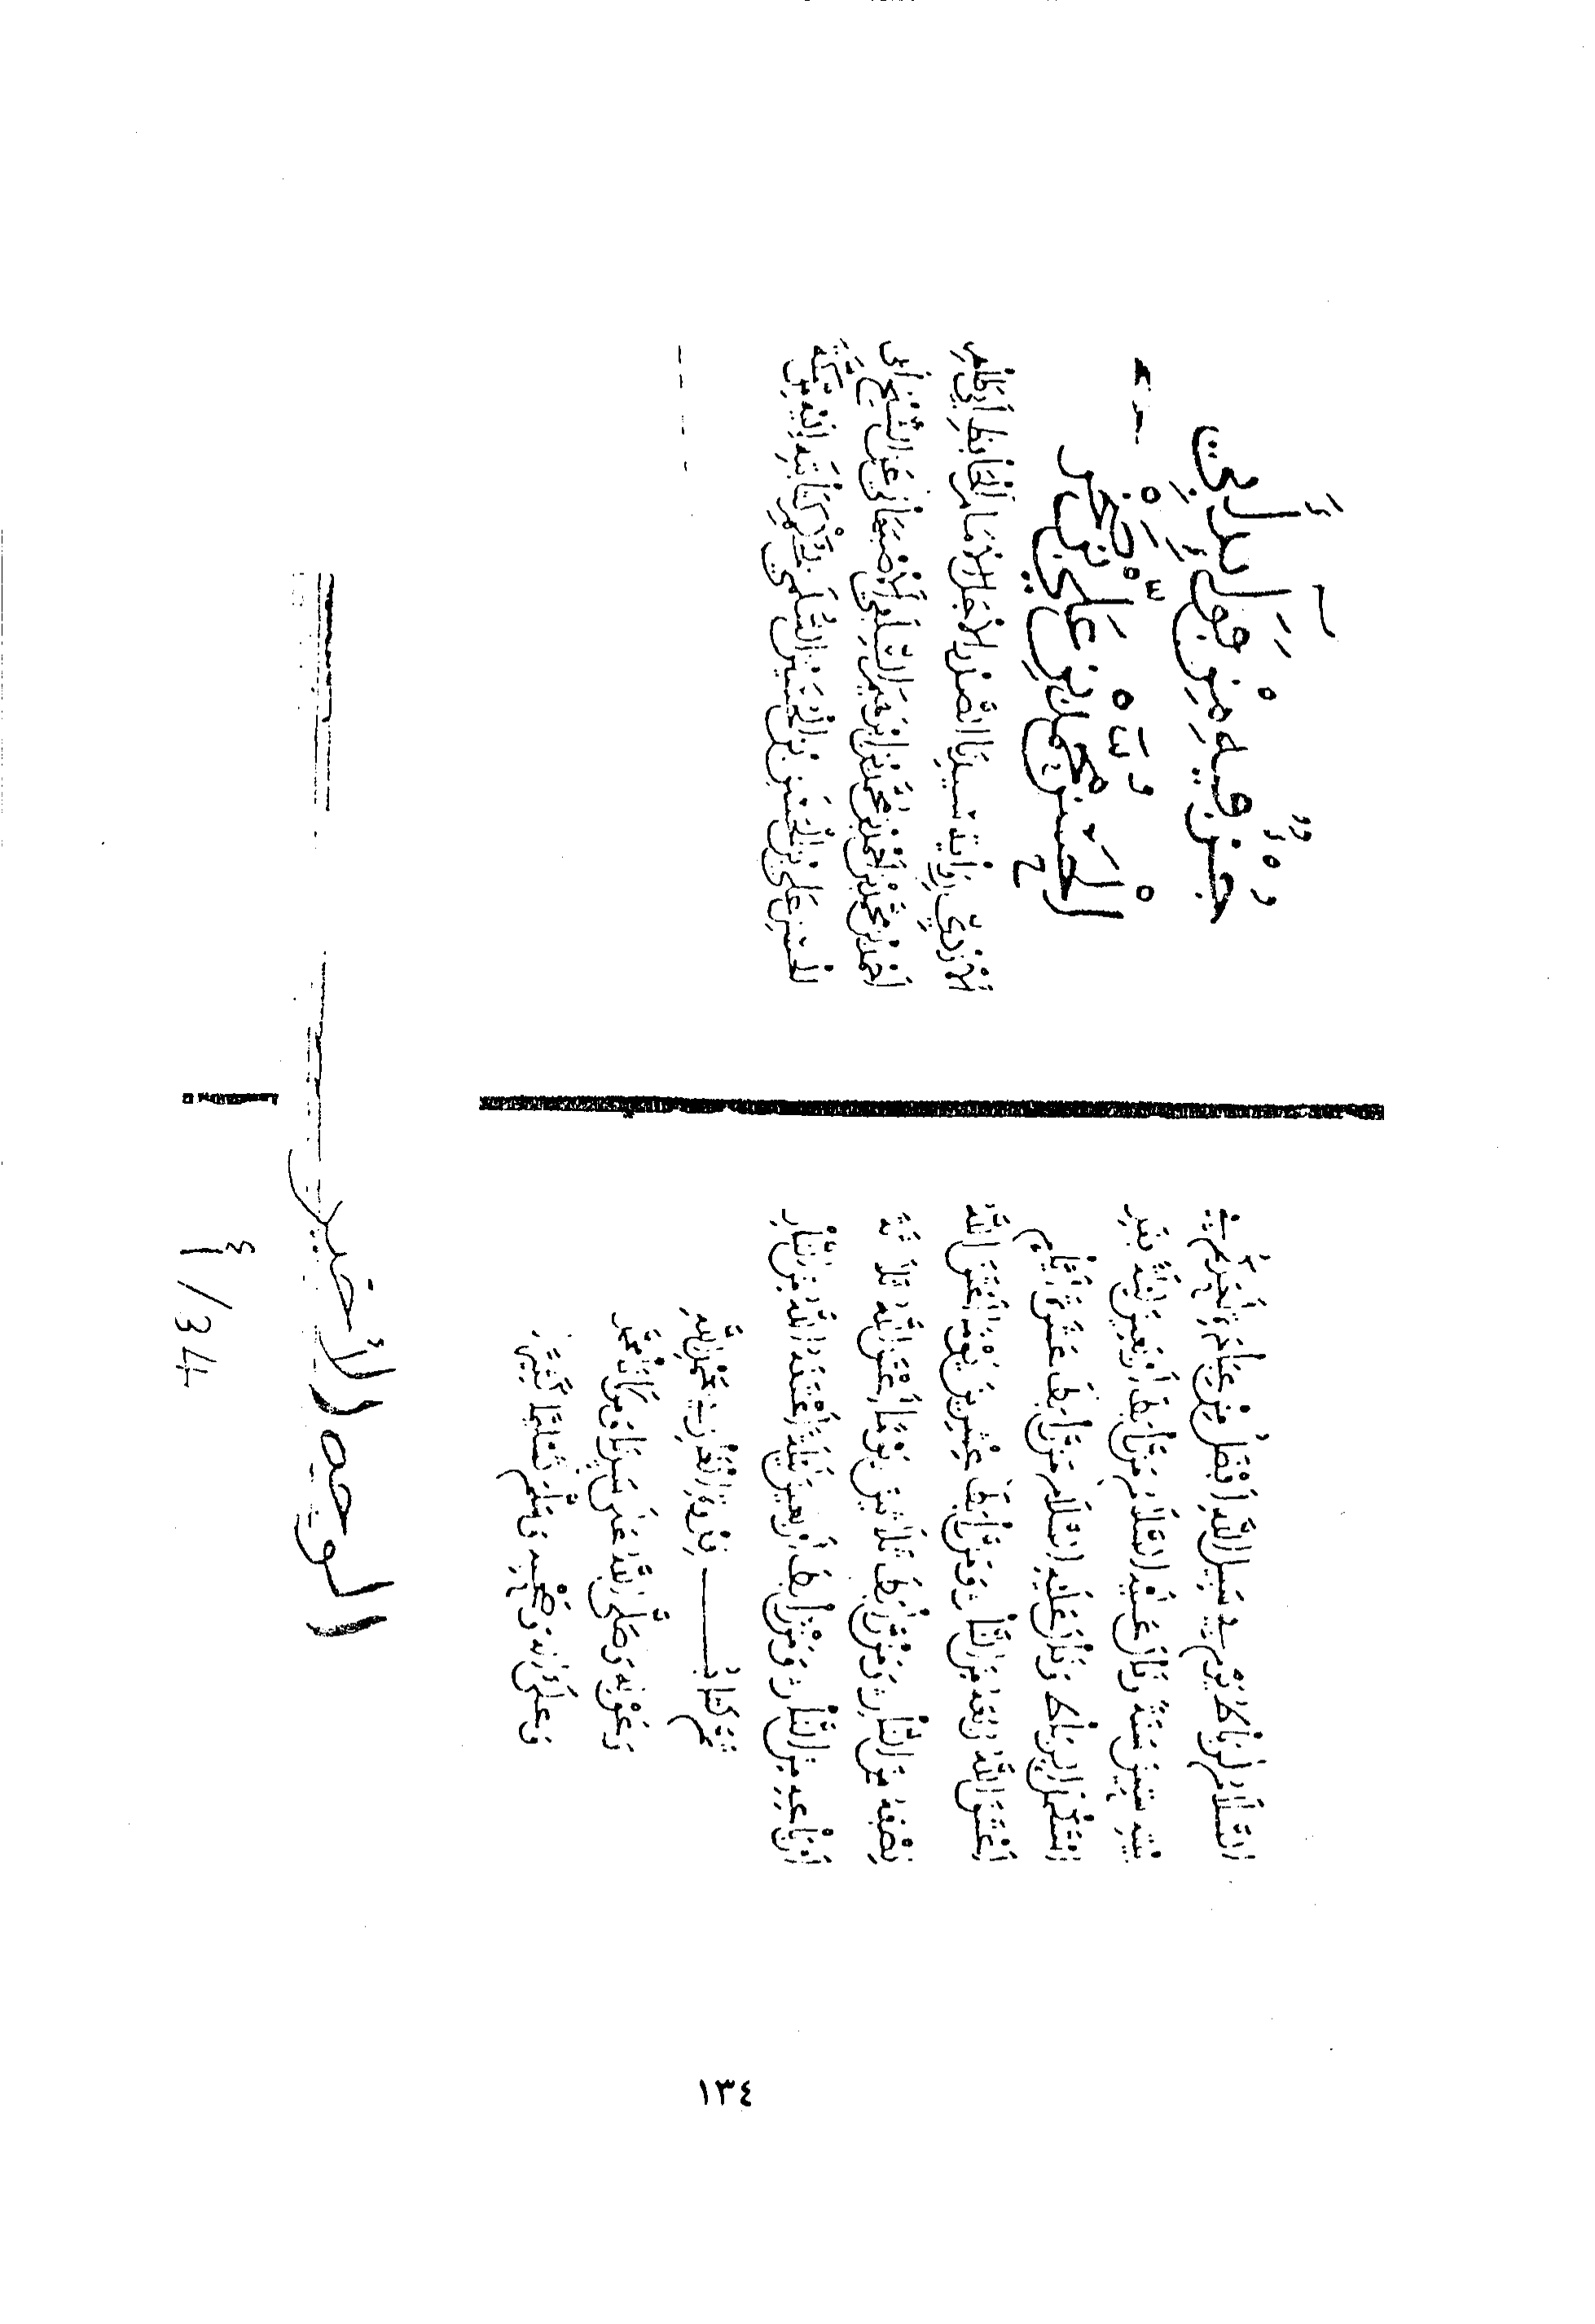 السلام لرباط يوم في سبيل الله أفضل من عبادة أحدكم في
بيته ستين سنة وقال عليه السلام من رابط أربعين ليلة فقد
استكمل الرباط وقال عليه السلام من رابط عشرة أيام
أعتق الله ربعه من النار ومن رابط عشرين يوما أعتق الله
نصفه من النار ومن رابط ثلاثين يوما أعتق الله ثلاثة
أرباعه من النار ومن رابط أربعين ليلة أعتقه الله من النار
تم كتاب بحمد الله
وعونه وصلى الله على سيدنا ومولانا محمد
وعلى آله وصحبه وسلم تسليما كثيرا
جزء فيه من فوايد أبي
الحسن محمد بن علي بن صخر
الأزدي رواية سيدنا الصدر الأجل الإمام الحافظ أبي طاهر
أحمد بن محمد بن أحمد بن محمد بن إبراهيم السلفي الأصبهاني عن الشيخ أبي
الحسن علي بن الحسن بن الحسين السلمي
الوجه الأخير
34/أ
١٣٤